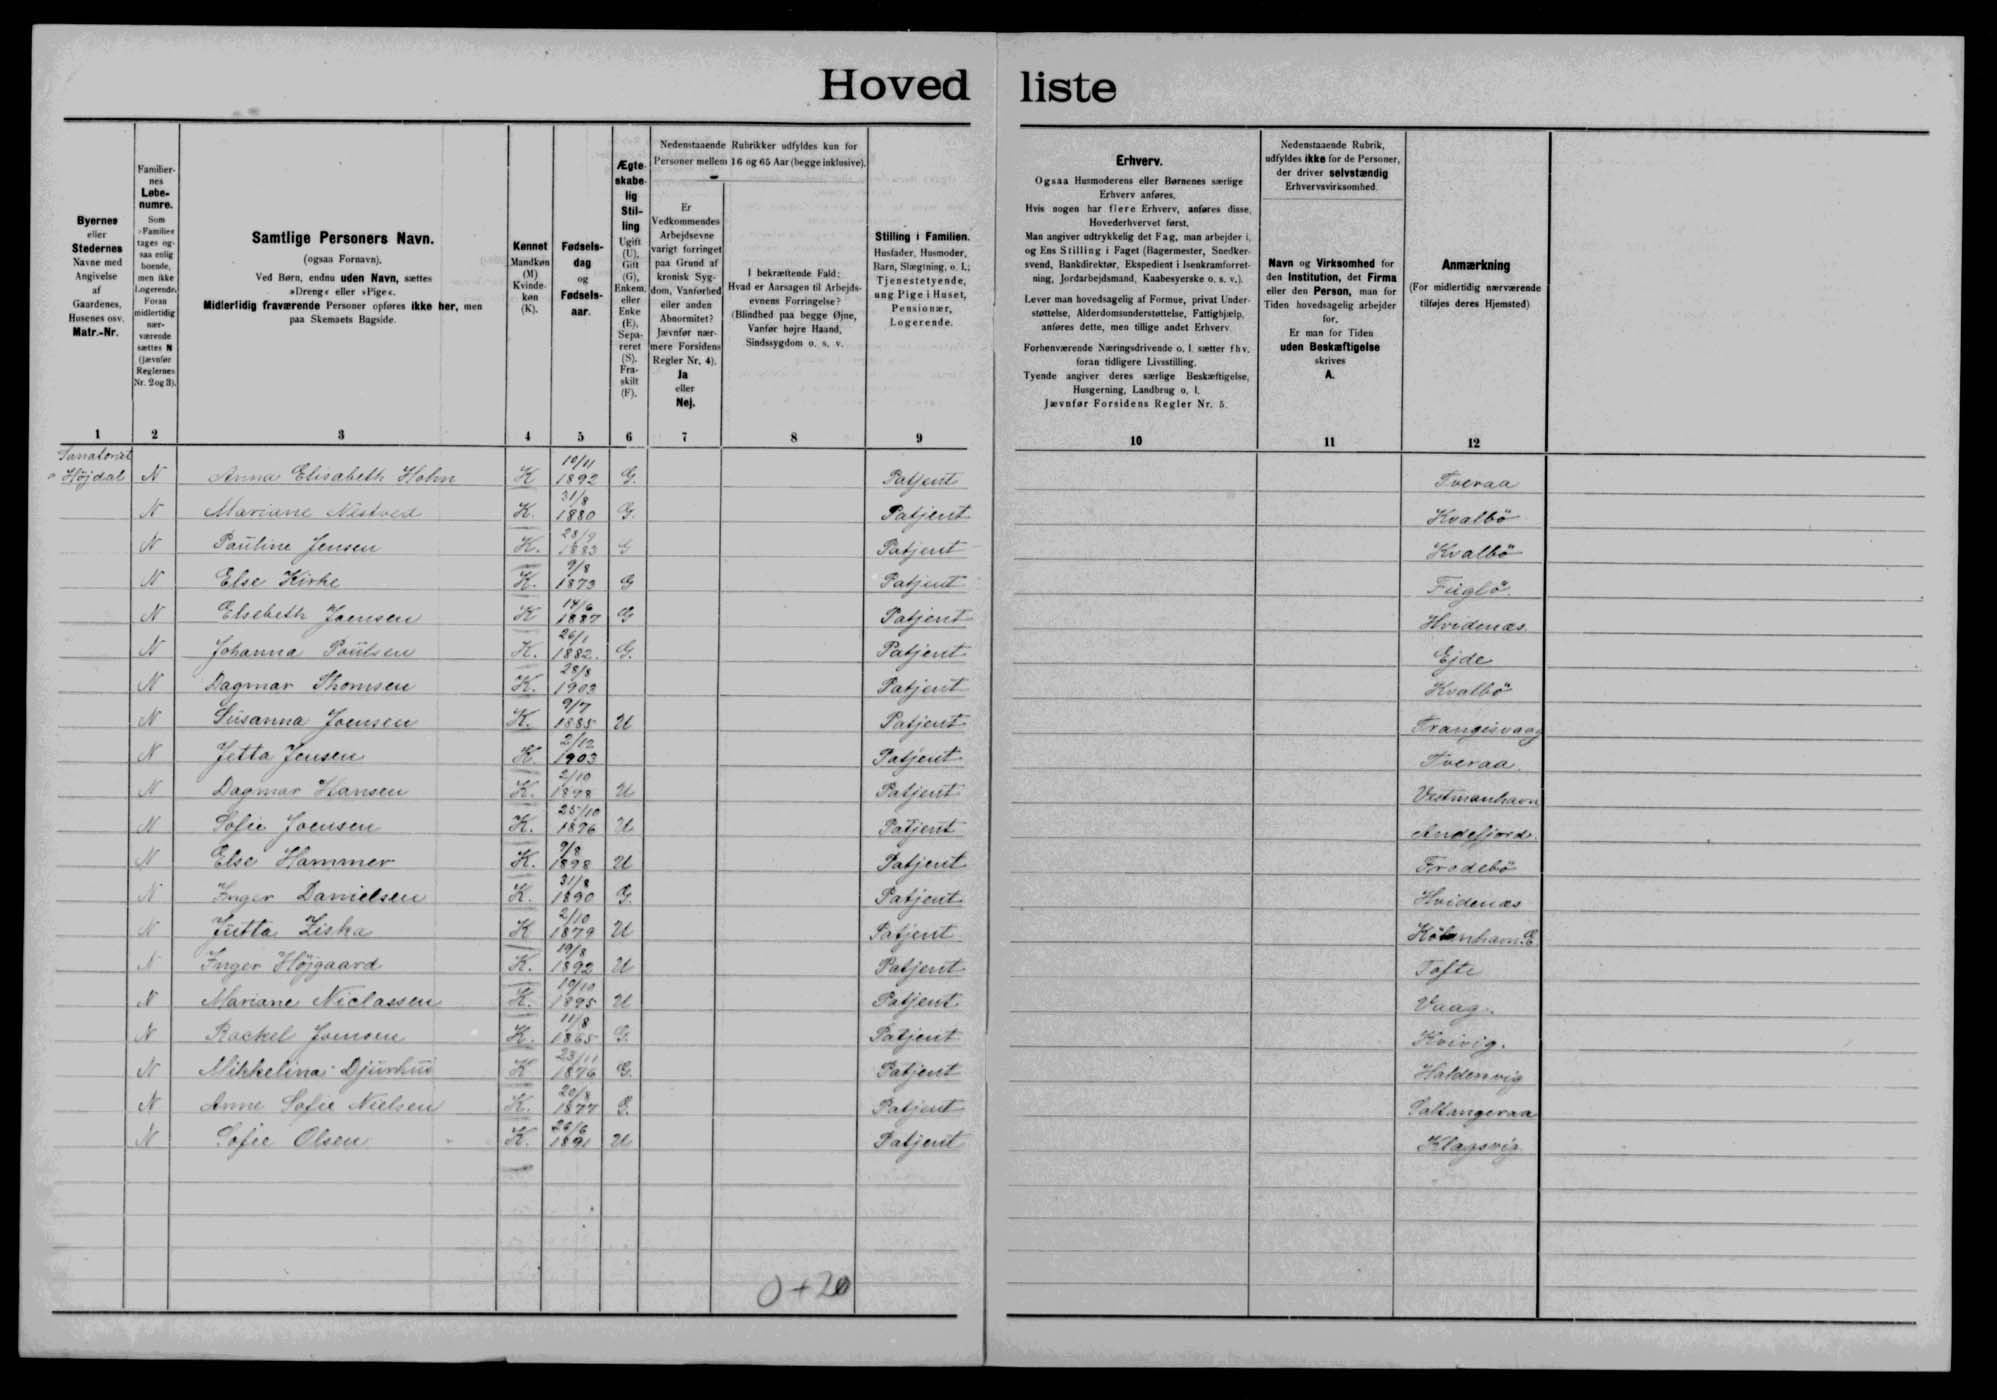 Hoved liste
Byernes
eller
Stedernes
Navne med
Angivelse
af
Gaardenes,
Husenes osv.
Matr.-Nr.
Familier-
nes
Løbe-
numre.
Som
»Familie«
tages og-
saa enlig
boende,
men ikke
Logerende.
Foran
midlertidig
nær-
værende
sættes N
(Jævnfør
Reglernes
Nr. 2 og 3).
Samtlige Personers Navn.
(ogsaa Fornavn).
Ved Børn, endnu uden Navn, sættes
»Dreng« eller »Pige«.
Midlertidig fraværende Personer opføres ikke her, men
paa Skemaets Bagside.
Kønnet
Mandkøn
(M)
Kvinde-
køn
(K).
Fødsels-
dag
og
Fødsels-
aar.
Ægte-
skabe-
lig
Stil-
ling
Ugift
(U),
Gift
(G),
Enkem.
eller
Enke
(E),
Sepa-
reret
(S).
Fra-
skilt
(F).
Nedenstaaende Rubrikker udfyldes kun for
Personer mellem 16 og 65 Aar (begge inklusive).
Er
Vedkommendes
Arbejdsevne
varigt forringet
paa Grund af
kronisk Syg-
dom, Vanførhed
eller anden
Abnormitet?
Jævnfør nær-
mere Forsidens
Regler Nr. 4).
Ja
eller
Nej.
I bekræftende Fald:
Hvad er Aarsagen til Arbejds-
evnens Forringelse?
(Blindhed paa begge Øjne,
Vanfør højre Haand,
Sindssygdom o. s. v.
Stilling i Familien.
Husfader, Husmoder,
Barn, Slægtning, o. l.;
Tjenestetyende,
ung Pige i Huset,
Pensionær,
Logerende.
Erhverv.
Ogsaa Husmoderens eller Børnenes særlige
Erhverv anføres.
Hvis nogen har flere Erhverv, anføres disse,
Hovederhvervet først.
Man angiver udtrykkelig det Fag, man arbejder i,
og Ens Stilling i Faget (Bagermester, Snedker-
svend, Bankdirektør, Ekspedient i Isenkramforret-
ning, Jordarbejdsmand, Kaabesyerske o. s. v.).
Lever man hovedsagelig af Formue, privat Under-
støttelse, Alderdomsunderstøttelse, Fattighjælp,
anføres dette, men tillige andet Erhverv.
Forhenværende Næringsdrivende o. l. sætter fhv.
foran tidligere Livsstilling.
Tyende angiver deres særlige Beskæftigelse,
Husgerning, Landbrug o. l.
Jævnfør Forsidens Regler Nr. 5.
Nedenstaaende Rubrik,
udfyldes ikke for de Personer,
der driver selvstændig
Erhvervsvirksomhed.
Navn og Virksomhed for
den Institution, det Firma
eller den Person, man for
Tiden hovedsagelig arbejder
for.
Er man for Tiden
uden Beskæftigelse
skrives
A.
Anmærkning
(For midlertidig nærværende
tilføjes deres Hjemsted)
1 2 3 4 5 6 7 8 9 10 11 12
Sanatoriet
Højdal N Anna Elisabeth Holm K 10/11 1892 G. Patjent Tveraa
N Mariane Nistved K. 31/8 1880 G. Patjent Kvalbö
N Pauline Jensen K. 28/9 1883 G Patjent Kvalbö
N Else Kirke K. 9/8 1873 G Patjent Fuglö.
N Elsebeth Joensen K 14/6 1887 G Patjent Hvidenæs
N Johanna Poulsen K. 26/1 1882. G. Patjent Ejde
N Dagmar Thomsen K. 28/8 1903 Patjent Kvalbö
N Susanna Joensen K. 9/7 1885 U Patjent Trangisvaag
N Jetta Jensen K. 2/12 1903 Patjent Tveraa.
N Dagmar Hansen K. 2/10 1898 U Patjent Vestmanhavn
N Sofie Joensen K. 25/10 1896 U Patjent Andefjord.
N Else Hammer K. 9/8 1898 U Patjent Frodebö
N Inger Danielsen K. 31/8 1890 G. Patjent Hvidenæs
N Jutta Ziska K 2/10 1879 U Patjent
N Inger Højgaard K. 19/8 1892 U Patjent Tofte
N Mariane Niclassen K. 19/10 1895 U Patjent Vaag.
N Rackel Joensen K. 11/8 1865 G. Patjent Kvivig.
N Mikkelina Djurhus K 23/11 1876 G. Patjent Haldersvig
N Anne Sofie Nielsen K. 20/8 1877 G. Patjent Saltangeraa
N Sofie Olsen K. 26/6 1891 U Patjent Klagsvig
0+20